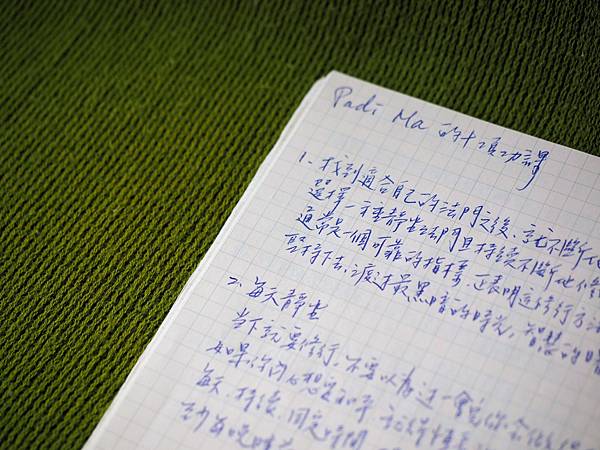 Padi Ma 的十項功課
1. 找到適合自己的法門之後,就不斷地
選擇一種靜坐法門且持續不斷地修
通常是一個可靠的指標,表明這修行方法
堅持下去,渡過最黑暗的時光,智慧的曙
2. 每天靜坐
當下就要修行,不要以為過一會兒你會
如果你們心想
每天、持續、固定時間